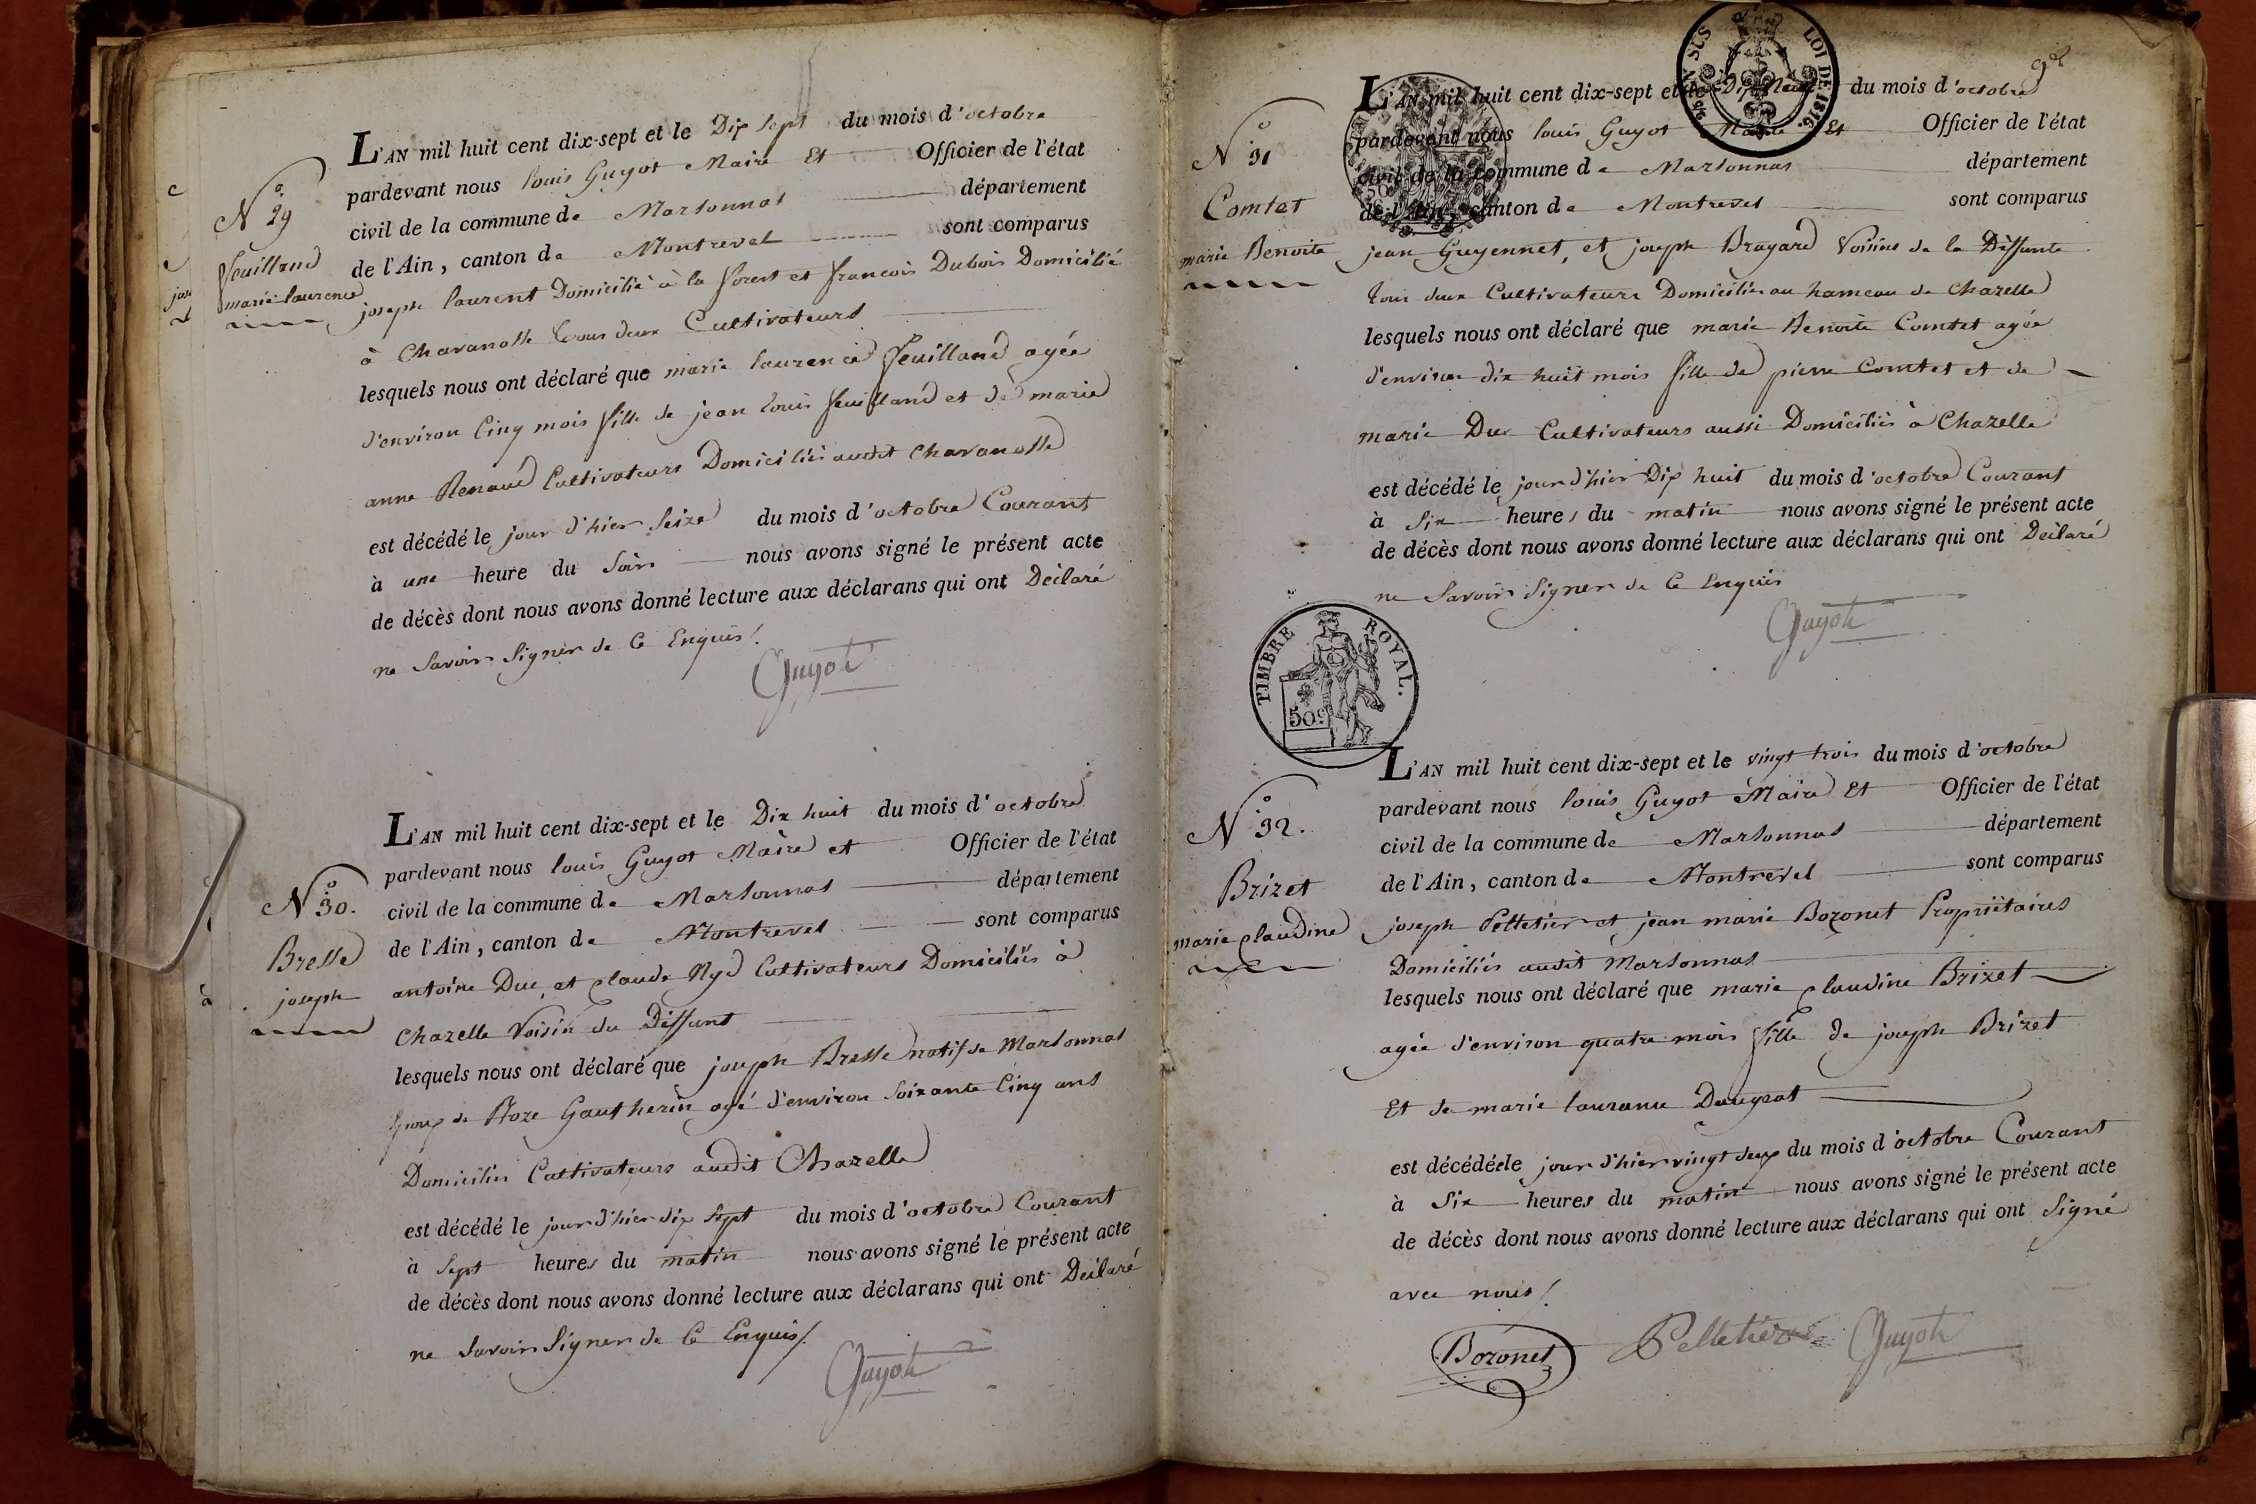 L'AN mil huit cent dix-sept et le Dix sept du mois d'octobre
pardevant nous louis Guyot Maire Et Officier de l'état
civil de la commune de Marsonnas département
de l'Ain, canton de Montrevel sont comparus
joseph laurent Domicilié à la forest et francois Dubois Domicilié
à Chavanosse tous deux Cultivateurs
lesquels nous ont déclaré que marie laurence feuilland agée
d'environ Cinq mois fille de jean louis feuilland et de marie
anne Renaud Cultivateurs Domiciliés audit Chavanosse
est décédé le jour d'hier Seize du mois d'octobre Courant
à une heure du Soir nous avons signé le présent acte
de décès dont nous avons donné lecture aux déclarans qui ont Déclaré
ne Savoir Signer de Ce Enquis
Guyot
No 29
feuilland
marie laurence
L'AN mil huit cent dix-sept et le Dix huit du mois d'octobre
pardevant nous louis Guyot Maire et Officier de l'état
civil de la commune de Marsonnas département
de l'Ain, canton de Montrevel sont comparus
antoine Duc et Claude Nyd Cultivateurs Domiciliés à
Chazelle Voisin du Déffunt
lesquels nous ont déclaré que joseph Bresse natif de Marsonnas
de Roze Gautherin agé d'environ Soixante Cinq ans
Domiciliés Cultivateurs audit Chazelle
est décédé le jour d'hier dix sept du mois d'octobre Courant
à Sept heures du matin nous avons signé le présent acte
de décès dont nous avons donné lecture aux déclarans qui ont Déclaré
ne Savoir Signer de Ce Enquis
Guyot
No 30.
Bresse
joseph
L'AN mil huit cent dix-sept et le Dix Neuf du mois d'octobre
pardevant nous louis Guyot Maire Et Officier de l'état
civil de la commune de Marsonnas département
de l'Ain, canton de Montrevel sont comparus
jean Guyennet, et joseph Brayard Voisins de la Déffunte
tous deux Cultivateurs Domiciliés au hameau de Chazelle
lesquels nous ont déclaré que marie Benoite Comtet agée
d'environ dix huit mois fille de pierre Comtet et de
marie Duc Cultivateurs aussi Domiciliés à Chazelle
est décédé le jour d'hier Dix huit du mois d'octobre Courant
à Six heures du matin nous avons signé le présent acte
de décès dont nous avons donné lecture aux déclarans qui ont Déclaré
ne Savoir Signer de Ce Enquis
Guyot
No 31
Comtet
marie Benoite
LOI DE 1816.
TIMBRE ROYAL.
50c
L'AN mil huit cent dix-sept et le vingt trois du mois d'octobre
pardevant nous louis Guyot Maire Et Officier de l'état
civil de la commune de Marsonnas département
de l'Ain, canton de Montrevel sont comparus
joseph Pelletier et jean marie Bozonet Propriétaires
Domiciliés audit Marsonnas
lesquels nous ont déclaré que marie Claudine Brizet
agée d'environ quatre mois fille de joseph Brizet
Et de marie
est décédée le jour d'hier vingt deux du mois d'octobre Courant
à Six heures du matin nous avons signé le présent acte
de décès dont nous avons donné lecture aux déclarans qui ont Signé
avec nous
Bozonet Pelletier Guyot
No 32.
Brizet
marie Claudine